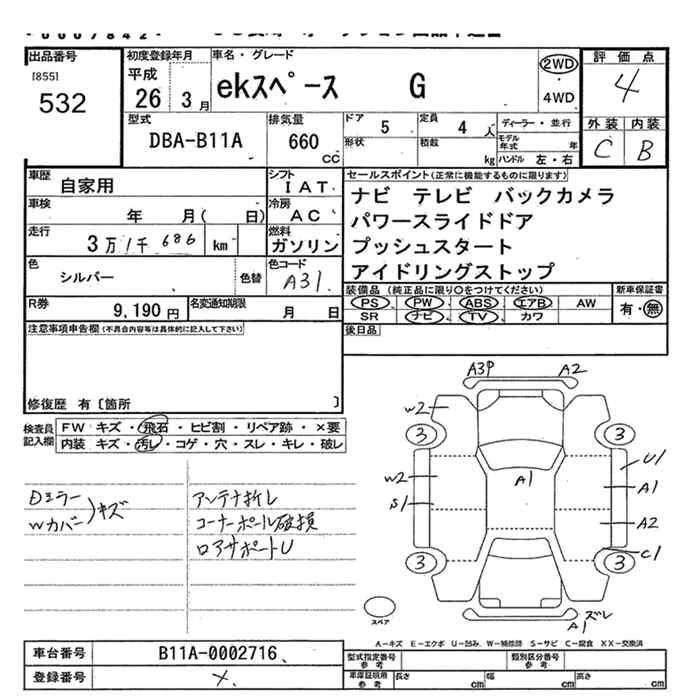 出品番号
[855]
532
初度登録年月
平成
26年 3月
車名・グレード
ekスペース G
2WD
・
4WD
評価点
4
外装 内装
C B
型式
DBA-B11A
排気量
660
cc
ドア
5
定員
4 人
形状
積載
kg
ディーラー・並行
モデル年式 年
ハンドル 左・右
車歴
自家用
シフト
IAT
車検
年 月( 日)
冷房
AC
走行
3万1千686 km
燃料
ガソリン
色
シルバー
色替
色コード
A31
R券
9,190円
名変通知期限
月 日
セールスポイント(正常に機能するものに限ります)
ナビ テレビ バックカメラ
パワースライドドア
プッシュスタート
アイドリングストップ
装備品(純正品に限り○をつけてください)
新車保証書
PS PW ABS エアB AW
SR ナビ TV カワ
有・無
後日品
注意事項申告欄(不具合内容等は具体的に記入して下さい)
修復歴 有〔箇所 〕
検査員
記入欄
FW キズ・飛石・ヒビ割・リペア跡・×要
内装 キズ・汚レ・コゲ・穴・スレ・キレ・破レ
Dミラー
Wカバー
キズ
アンテナ折レ
コーナーポール破損
ロアサポートU
A3P A2
W2
3 3
W2
S1
A1
U1
A1
A2
C1
3 3
スペア
ズレ
A1
A-キズ E-エクボ U-凹み W-補修跡 S-サビ C-腐食 XX-交換済
車台番号
B11A-0002716
登録番号
×
型式指定番号
参考
類別区分番号
参考
車庫証明用
参考
長さ cm
幅 cm
高さ cm